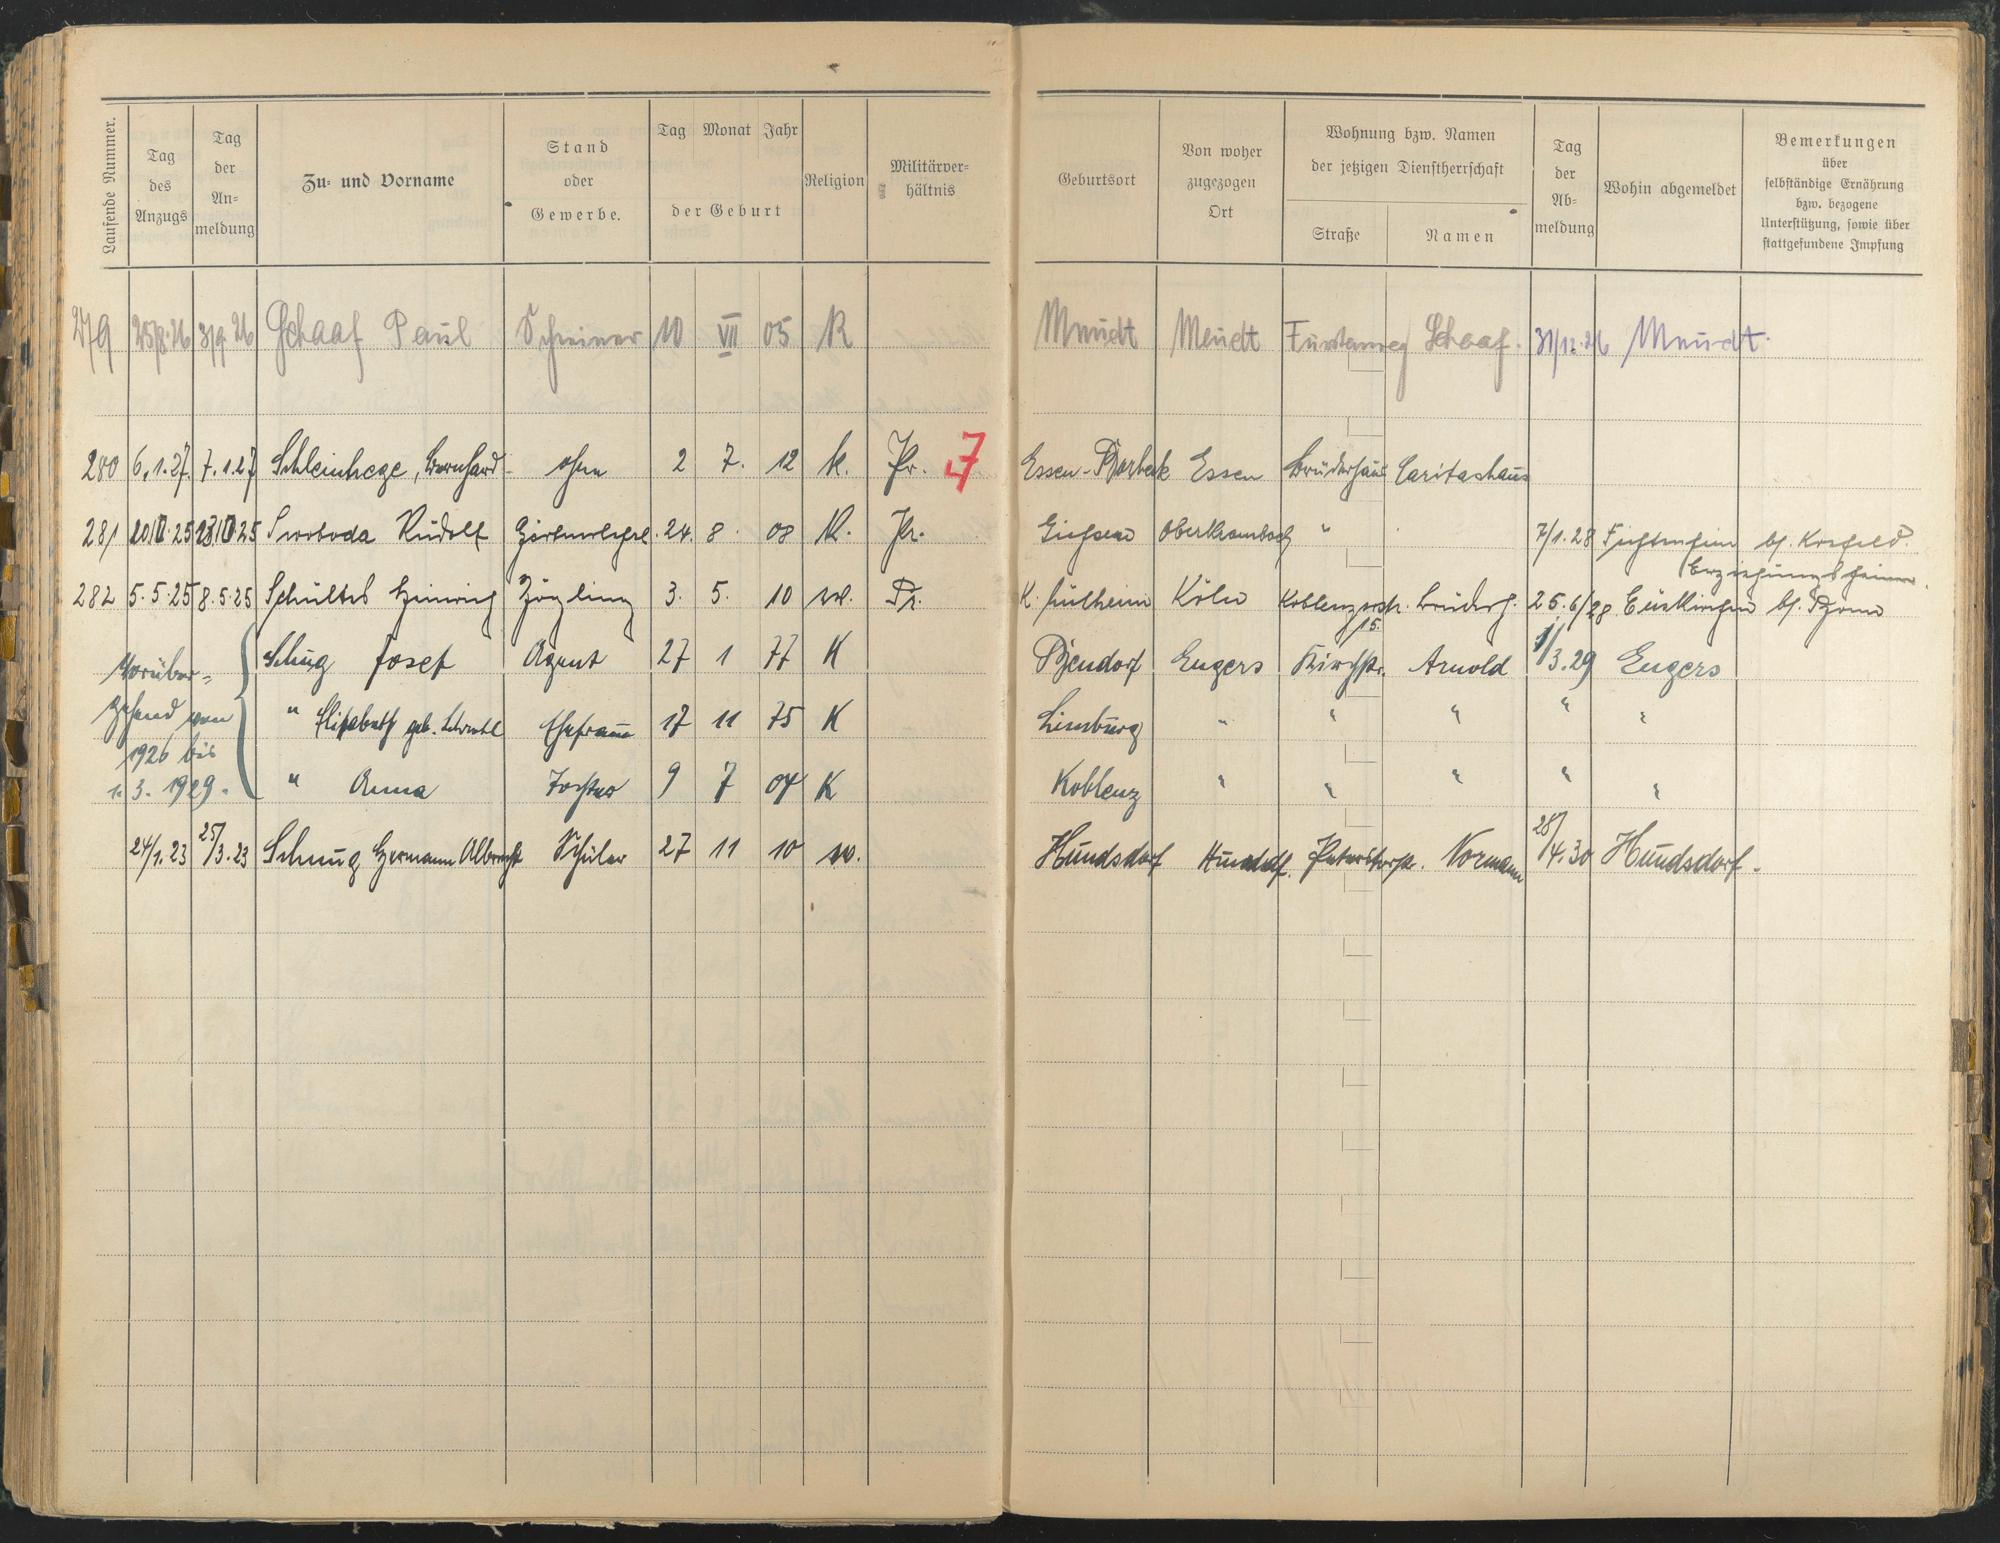 Laufende Nummer.
Tag des Anzugs
Tag der An-meldung
Zu- und Vorname
Stand oder Gewerbe.
Tag Monat Jahr der Geburt
Religion
Militärver-hältnis
Geburtsort
Von woher zugezogen Ort
Wohnung bzw. Namen der jetzigen Dienstherrschaft
Straße
Namen
Tag der Ab-meldung
Wohin abgemeldet
Bemerkungen über selbständige Ernährung bzw. bezogene Unterstützung, sowie über stattgefundene Impfung
279 25/8.26 3/9.26 Schaaf Paul Schreiner 10 VII 05 K Meudt Meudt Schaaf. 31/12.26 Meudt.
280 6.1.27. 7.1.27 Schleinhege, Bernhard ohne 2 7. 12 k. Pr. 7 Essen-Borbeck Essen Brüderhaus Caritashaus
281 Swoboda Rudolf Gärtnerlehrl. 24. 8. 08 K. Pr. Giessen " 7/1.28 Fichtenhein b. Krefeld.
Erziehungsheim.
282 5.5.25 8.5.25 Schultes Heinrich Zögling 3. 5. 10 ev. Pr. K. Mülheim Köln Koblenzerstr. Brüderh. 25.6/28 Euskirchen b. Bonn
15.
Vorüber=
gehend von
1926 bis
1.3.1929.
Schug Josef Agent 27 1 77 K Bendorf Engers Kirchstr. Arnold 1/3.29 Engers
" Elisabeth geb. Ehefrau 17 11 75 K Limburg " " " " "
" Anna Tochter 9 7 04 K Koblenz " " " " "
24/1.23 25/3.23 Schnug Hermann Albrecht Schüler 27 11 10 ev. Hundsdorf Hundsdf. Normann 28/4.30 Hundsdorf.